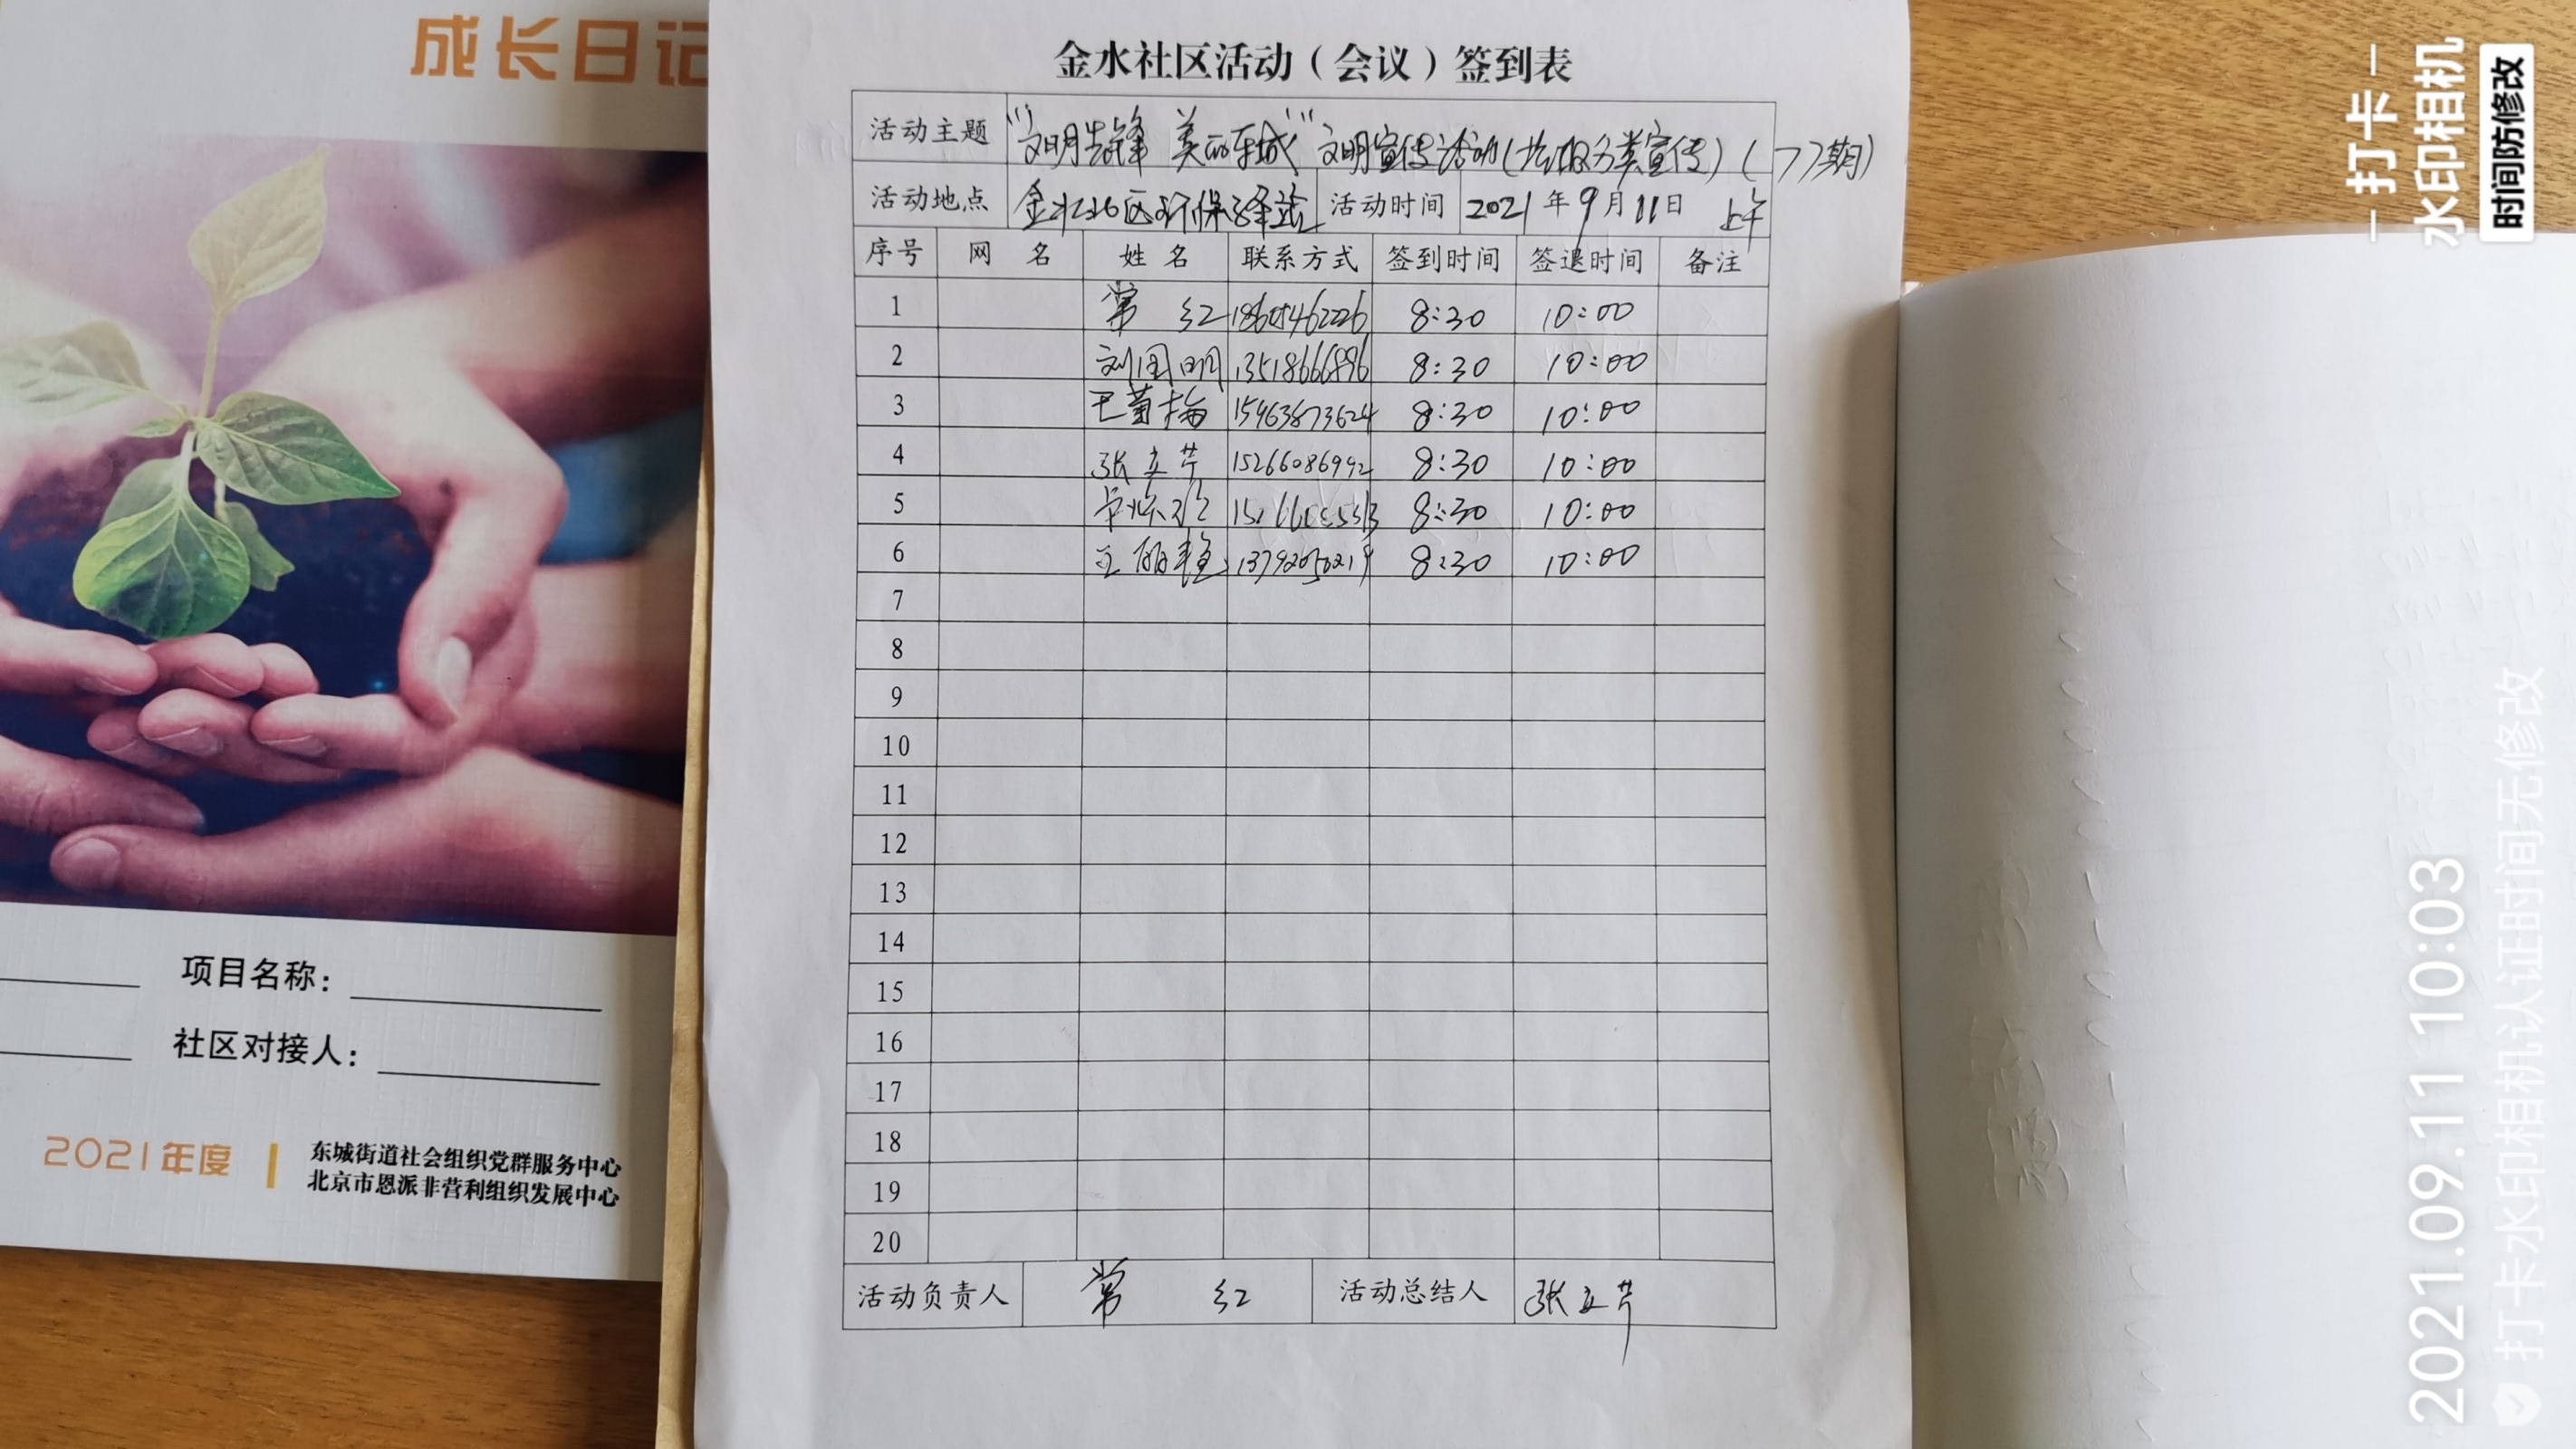 成长日记
项目名称：
社区对接人：
2021年度
东城街道社会组织党群服务中心
北京市恩派非营利组织发展中心
金水社区活动（会议）签到表
活动主题 "文明先锋 美丽东城" 文明宣传活动(垃圾分类宣传)(77期)
活动地点 金水社区环保驿站 活动时间 2021年9月11日 上午
序号 网名 姓名 联系方式 签到时间 签退时间 备注
1 常红 8:30 10:00
2 刘国明 13518666896 8:30 10:00
3 王菊梅 15963873624 8:30 10:00
4 张立芹 15266086992 8:30 10:00
5 8:30 10:00
6 王丽艳 8:30 10:00
7
8
9
10
11
12
13
14
15
16
17
18
19
20
活动负责人 常红 活动总结人 张立芹
打卡
水印相机
时间防修改
2021.09.11 10:03
打卡水印相机认证时间无修改